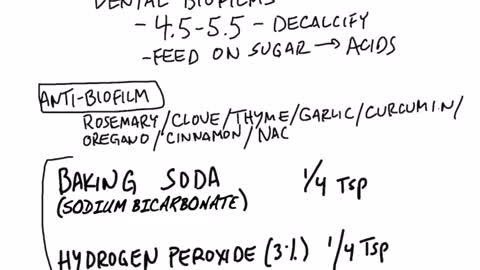 DENTAL BIOFILMS
- 4.5-5.5 - DECALCIFY
- FEED ON SUGAR → ACIDS
ANTI-BIOFILM
ROSEMARY/CLOVE/THYME/GARLIC/CURCUMIN/
OREGANO/CINNAMON/NAC
BAKING SODA 1/4 Tsp
(SODIUM BICARBONATE)
HYDROGEN PEROXIDE (3%) 1/4 Tsp